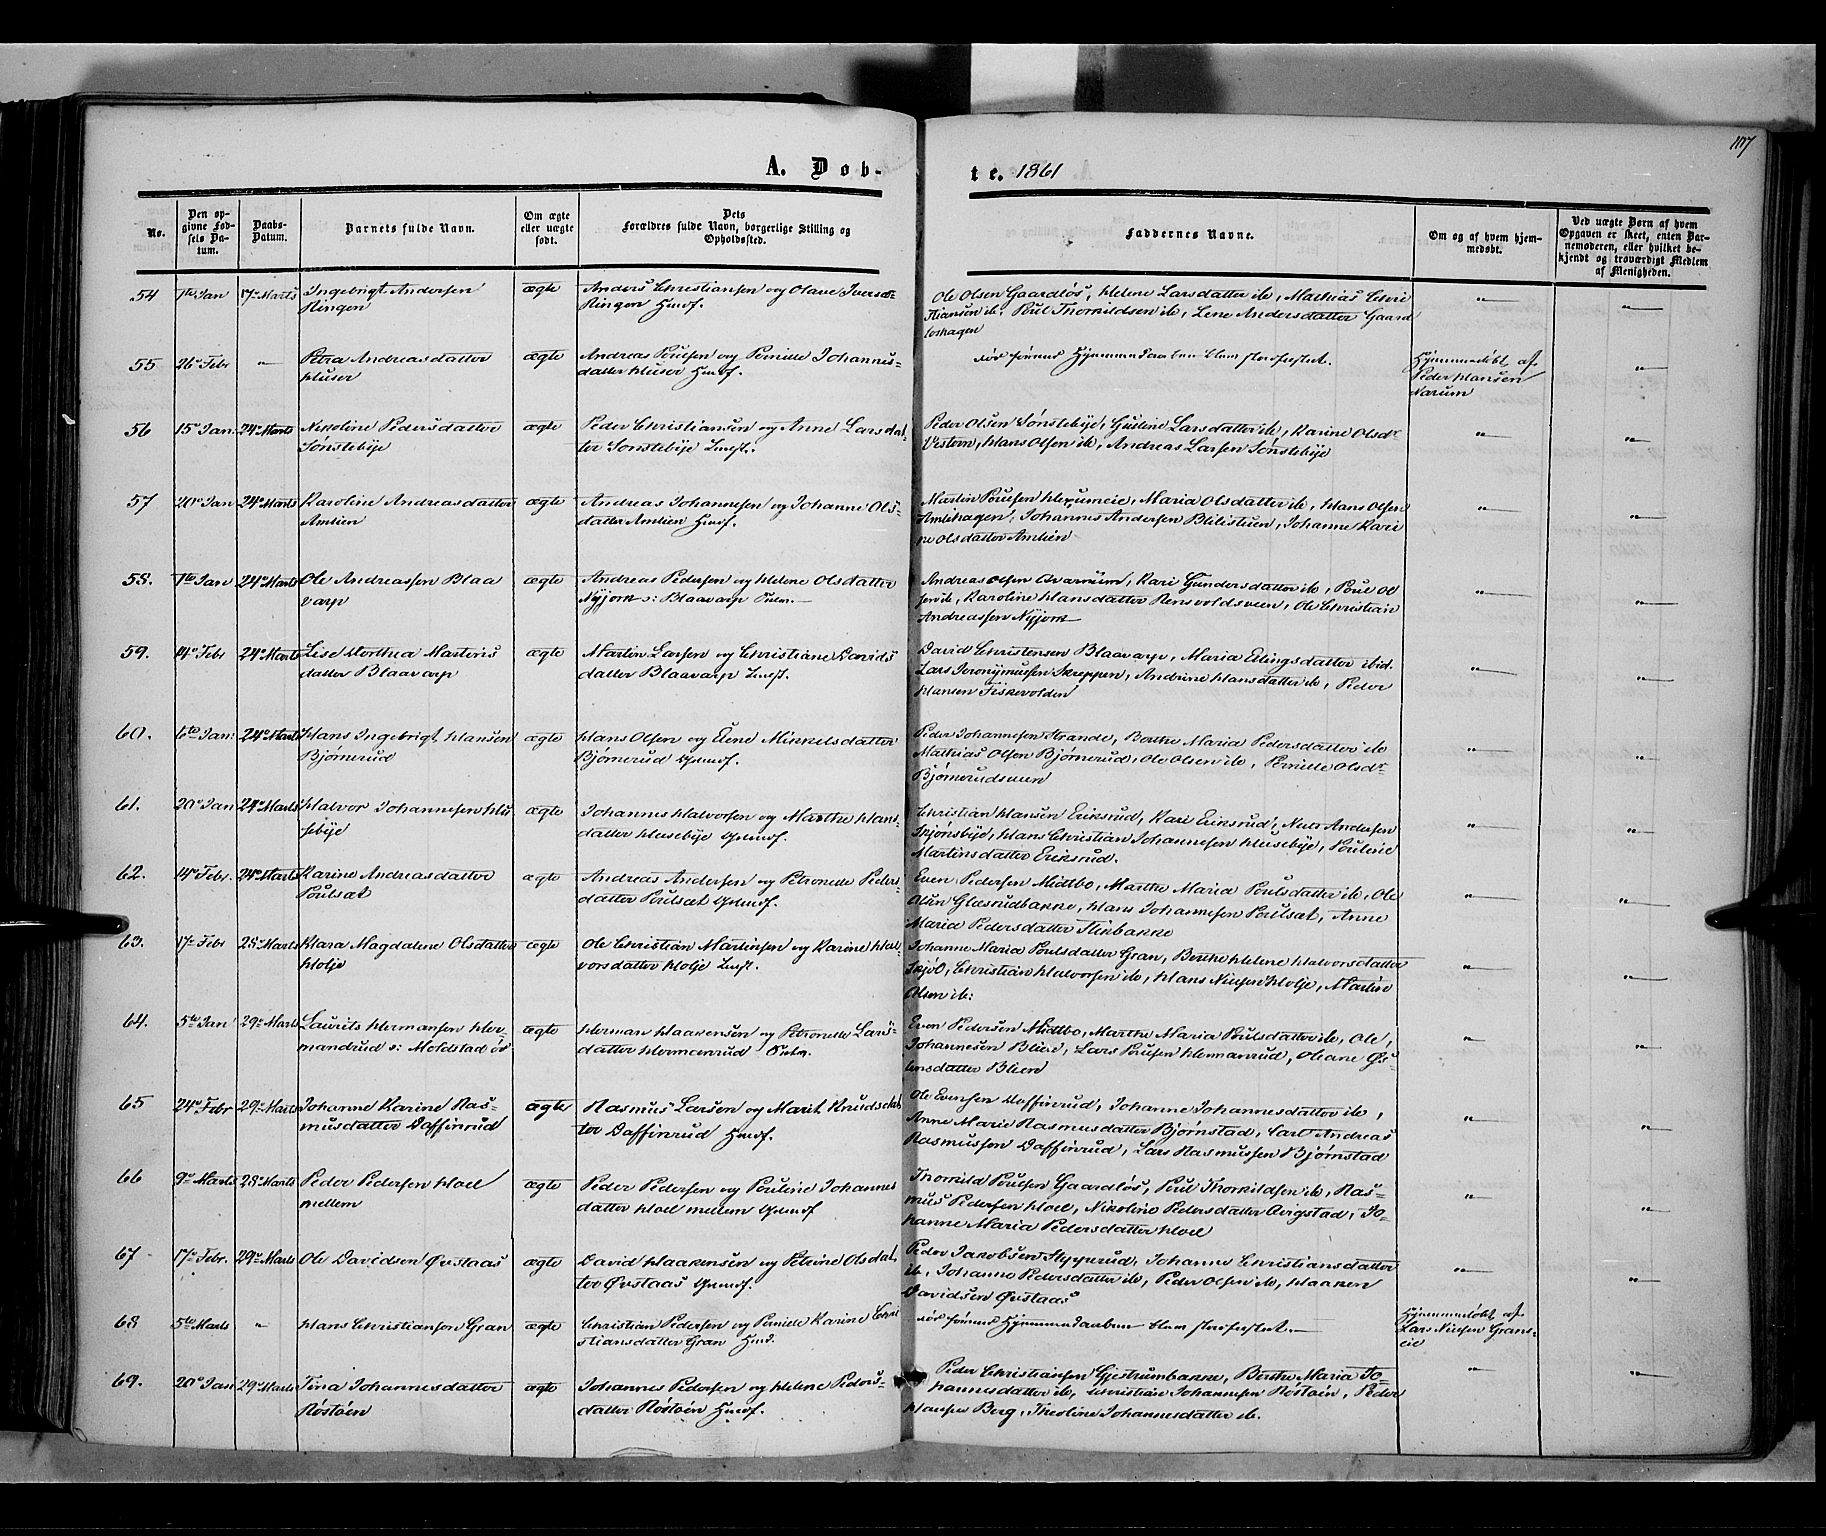 107
A. Døb-
te. 1861
No.
Den op-
givne Fød-
sels Da-
tum.
Daabs-
Datum.
Barnets fulde Navn.
Om ægte
eller uægte
født.
Dets
Forældres fulde Navn, borgerlige Stilling og
Opholdssted.
Faddernes Navne.
Om og af hvem hjem-
medøbt.
Ved uægte Børn af hvem
Opgaven er skeet, enten Bar-
nemoderen, eller hvilket be-
kjendt og troværdigt Medlem
af Menigheden.
54 7de Jan 17de Marts Ingebrigt Andersen ægte Anders Christiansen og Olave Iversd:
Ringen Ringen Huusf.
Ole Olsen Gaardløs, Helene Larsdatter ib, Mathias Chri
stiansen ib, Poul Thorkildsen ib, Lene Andersdatter Gaard
løshagen
55 26de Febr " Petra Andreasdatter ægte Andreas Poulsen og Pernille Johannes-
Huser datter Huser Huusf.
Hjemmedøbt af
Peder Hansen
Narum
56 15de Jan: 24de Marts Nikoline Pedersdatter ægte Peder Christiansen og Anne Larsdat-
Sønstebye ter Sønstebye Inderst.
Peder Olsen Sønstebye, Gusline Larsdatter ib, Karine Olsdr
Vestern, Hans Olsen ib, Andreas Larsen Sønstebye
57 20de Jan 24de Marts Karoline Andreasdatter ægte Andreas Johannesen og Johanne Ols-
Amlien datter Amlien Huusf.
Martin Poulsen Hexumeie, Maria Olsdatter ib, Hans Olsen
Amlihagen, Johannes Andersen Blilistuen, Johanne Kari
ne Olsdatter Amlien
58. 7de Jan 24de Marts Ole Andreassen Blaa ægte Andreas Pedersen og Helene Olsdatter
varp Nyjork s: Blaavarp
Andreas Olsen Avarnum, Kari Gundersdatter ib, Poul Ol
sen ib, Karoline Hansdatter Rensvoldsveen, Ole Christian
Andreassen Nyjork
59. 14de Febr 24de Marts Lise Dorthea Martins ægte Martin Larsen og Christiane Davids
datter Blaavarp datter Blaavarp Inderst.
David Christensen Blaavarp, Maria Ellingsdatter ibid.
Lars Jeronymussen Skreppen, Andrine Hansdatter ib, Peder
Hansen Fiskevolden
60. 6te Jan: 24de Marts Hans Ingebrigt Hansen ægte Hans Olsen og Elene Mikkelsdatter
Bjørnerud Bjørnerud Gaardmf.
Peder Johannesen Strande, Berthe Maria Pedersdatter ib
Mathias Olsen Bjørnerud, Ole Olsen ib, Pernille Olsdr
Bjørnerudsveen
61. 20de Jan 24de Marts Halvor Johannesen Hu ægte Johannes Halvorsen og Marthe Hans-
sebye datter Husebye Gaardmf.
Christian Hansen Eriksrud, Kari Eriksrud, Niels Andersen
Skjønsbye, Hans Christian Johannesen Husebye, Pouline
Martinsdatter Eriksrud.
62. 14de Febr. 24de Marts Karine Andreasdatter ægte Andreas Andersen og Petronelle Peders-
Poulsæt datter Poulsæt Gaardmf.
Even Pedersen Midtbo, Marthe Maria Poulsdatter ib, Ole
Olsen Glæsrudbakke, Hans Johannesen Poulsæt, Anne
Maria Pedersdatter
63. 17de Febr 28de Marts Klara Magdalene Olsdatter ægte Ole Christian Martinsen og Karine Hal-
Holje vorsdatter Holje Inderst.
Johanne Maria Poulsdatter Gran, Berthe Helene Halvorsdatter
Skjøl, Christian Halvorsen ib, Hans Nielsen Holje, Martin
Olsen ib:
64. 5te Jan 29de Marts Laurits Hermansen Her- ægte Herman Haakensen og Petronelle Lars-
mandrud s: Moldstad ør datter Hermanrud
Even Pedersen Midtbo, Marthe Maria Poulsdatter ib, Ole
Johannesen Blien, Lars Poulsen Hermanrud, Oleane Øs-
tensdatter Blien
65 24de Febr 29de Marts Johanne Karine Ras- ægte Rasmus Larsen og Marit Knudsdat
musdatter Daffinrud ter Daffinrud Huusf.
Ole Evensen Daffinrud, Johanne Johannesdatter ib,
Anne Marie Rasmusdatter Bjørnstad, Carl Andreas
Rasmussen Daffinrud, Lars Rasmussen Bjørnstad
66 9de Marts 28de Marts Peder Pedersen Hoel ægte Peder Pedersen og Pouline Johannes
mellem datter Hoel mellem Gaardmf
Thorkild Poulsen Gaardløs, Poul Thorkildsen ib, Ras-
mus Pedersen Hoel, Nikoline Pedersdatter Avigstad, Jo-
hanne Maria Pedersdatter Hoel
67 17de Febr. 29de Marts Ole Davidsen Øvstaas ægte David Haakensen og Petrine Olsdat
ter Øvstaas Gaardmf.
Peder Jakobsen Hypperud, Johanne Christiansdatter
ib, Johanne Pedersdatter ib, Peder Olsen ib, Haaken
Davidsen Øvstaas
68 5te Marts " Hans Christiansen Gran ægte Christian Pedersen og Pernille Karine Chri
stiansdatter Gran
Hjemmedøbt af
Lars Nielsen Grans-
eie
69. 20de Jan 29de Marts Tina Johannesdatter ægte Johannes Pedersen og Helene Peders-
Røstøen datter Røstøen Huusf.
Peder Christiansen Gjestrumbakke, Berthe Maria Jo-
hannesdatter ib, Christian Johannesen Røstøen, Peder
Hansen Berg, Theoline Johannesdatter ib.